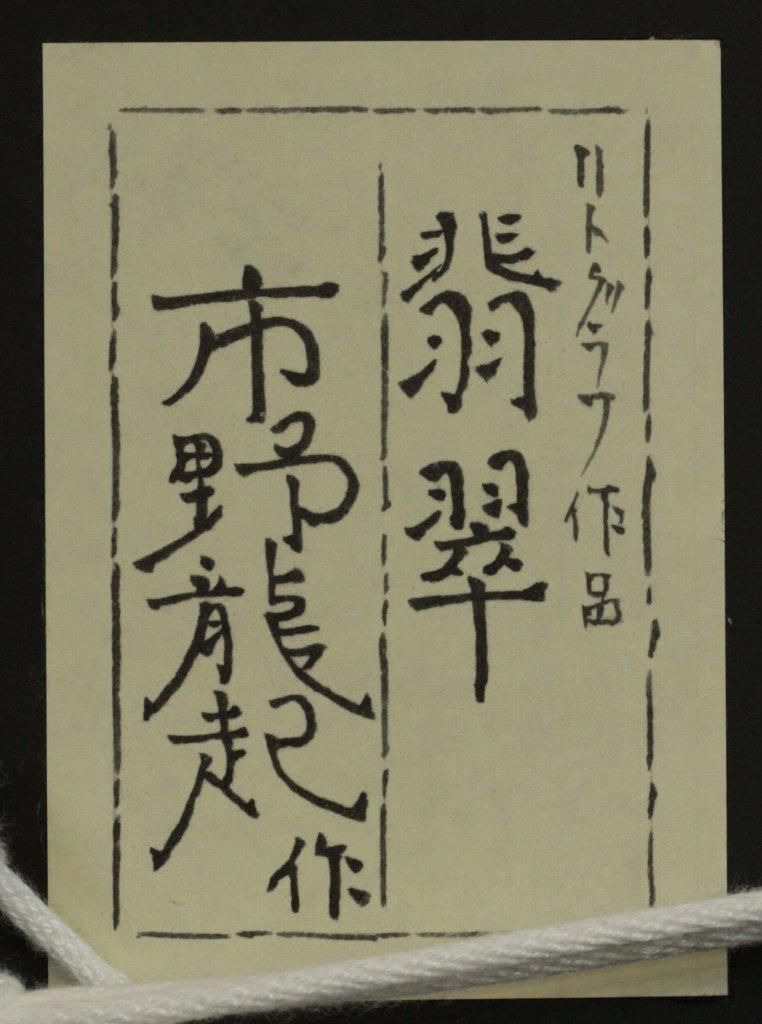 リトグラフ作品
翡翠
市野龍起作